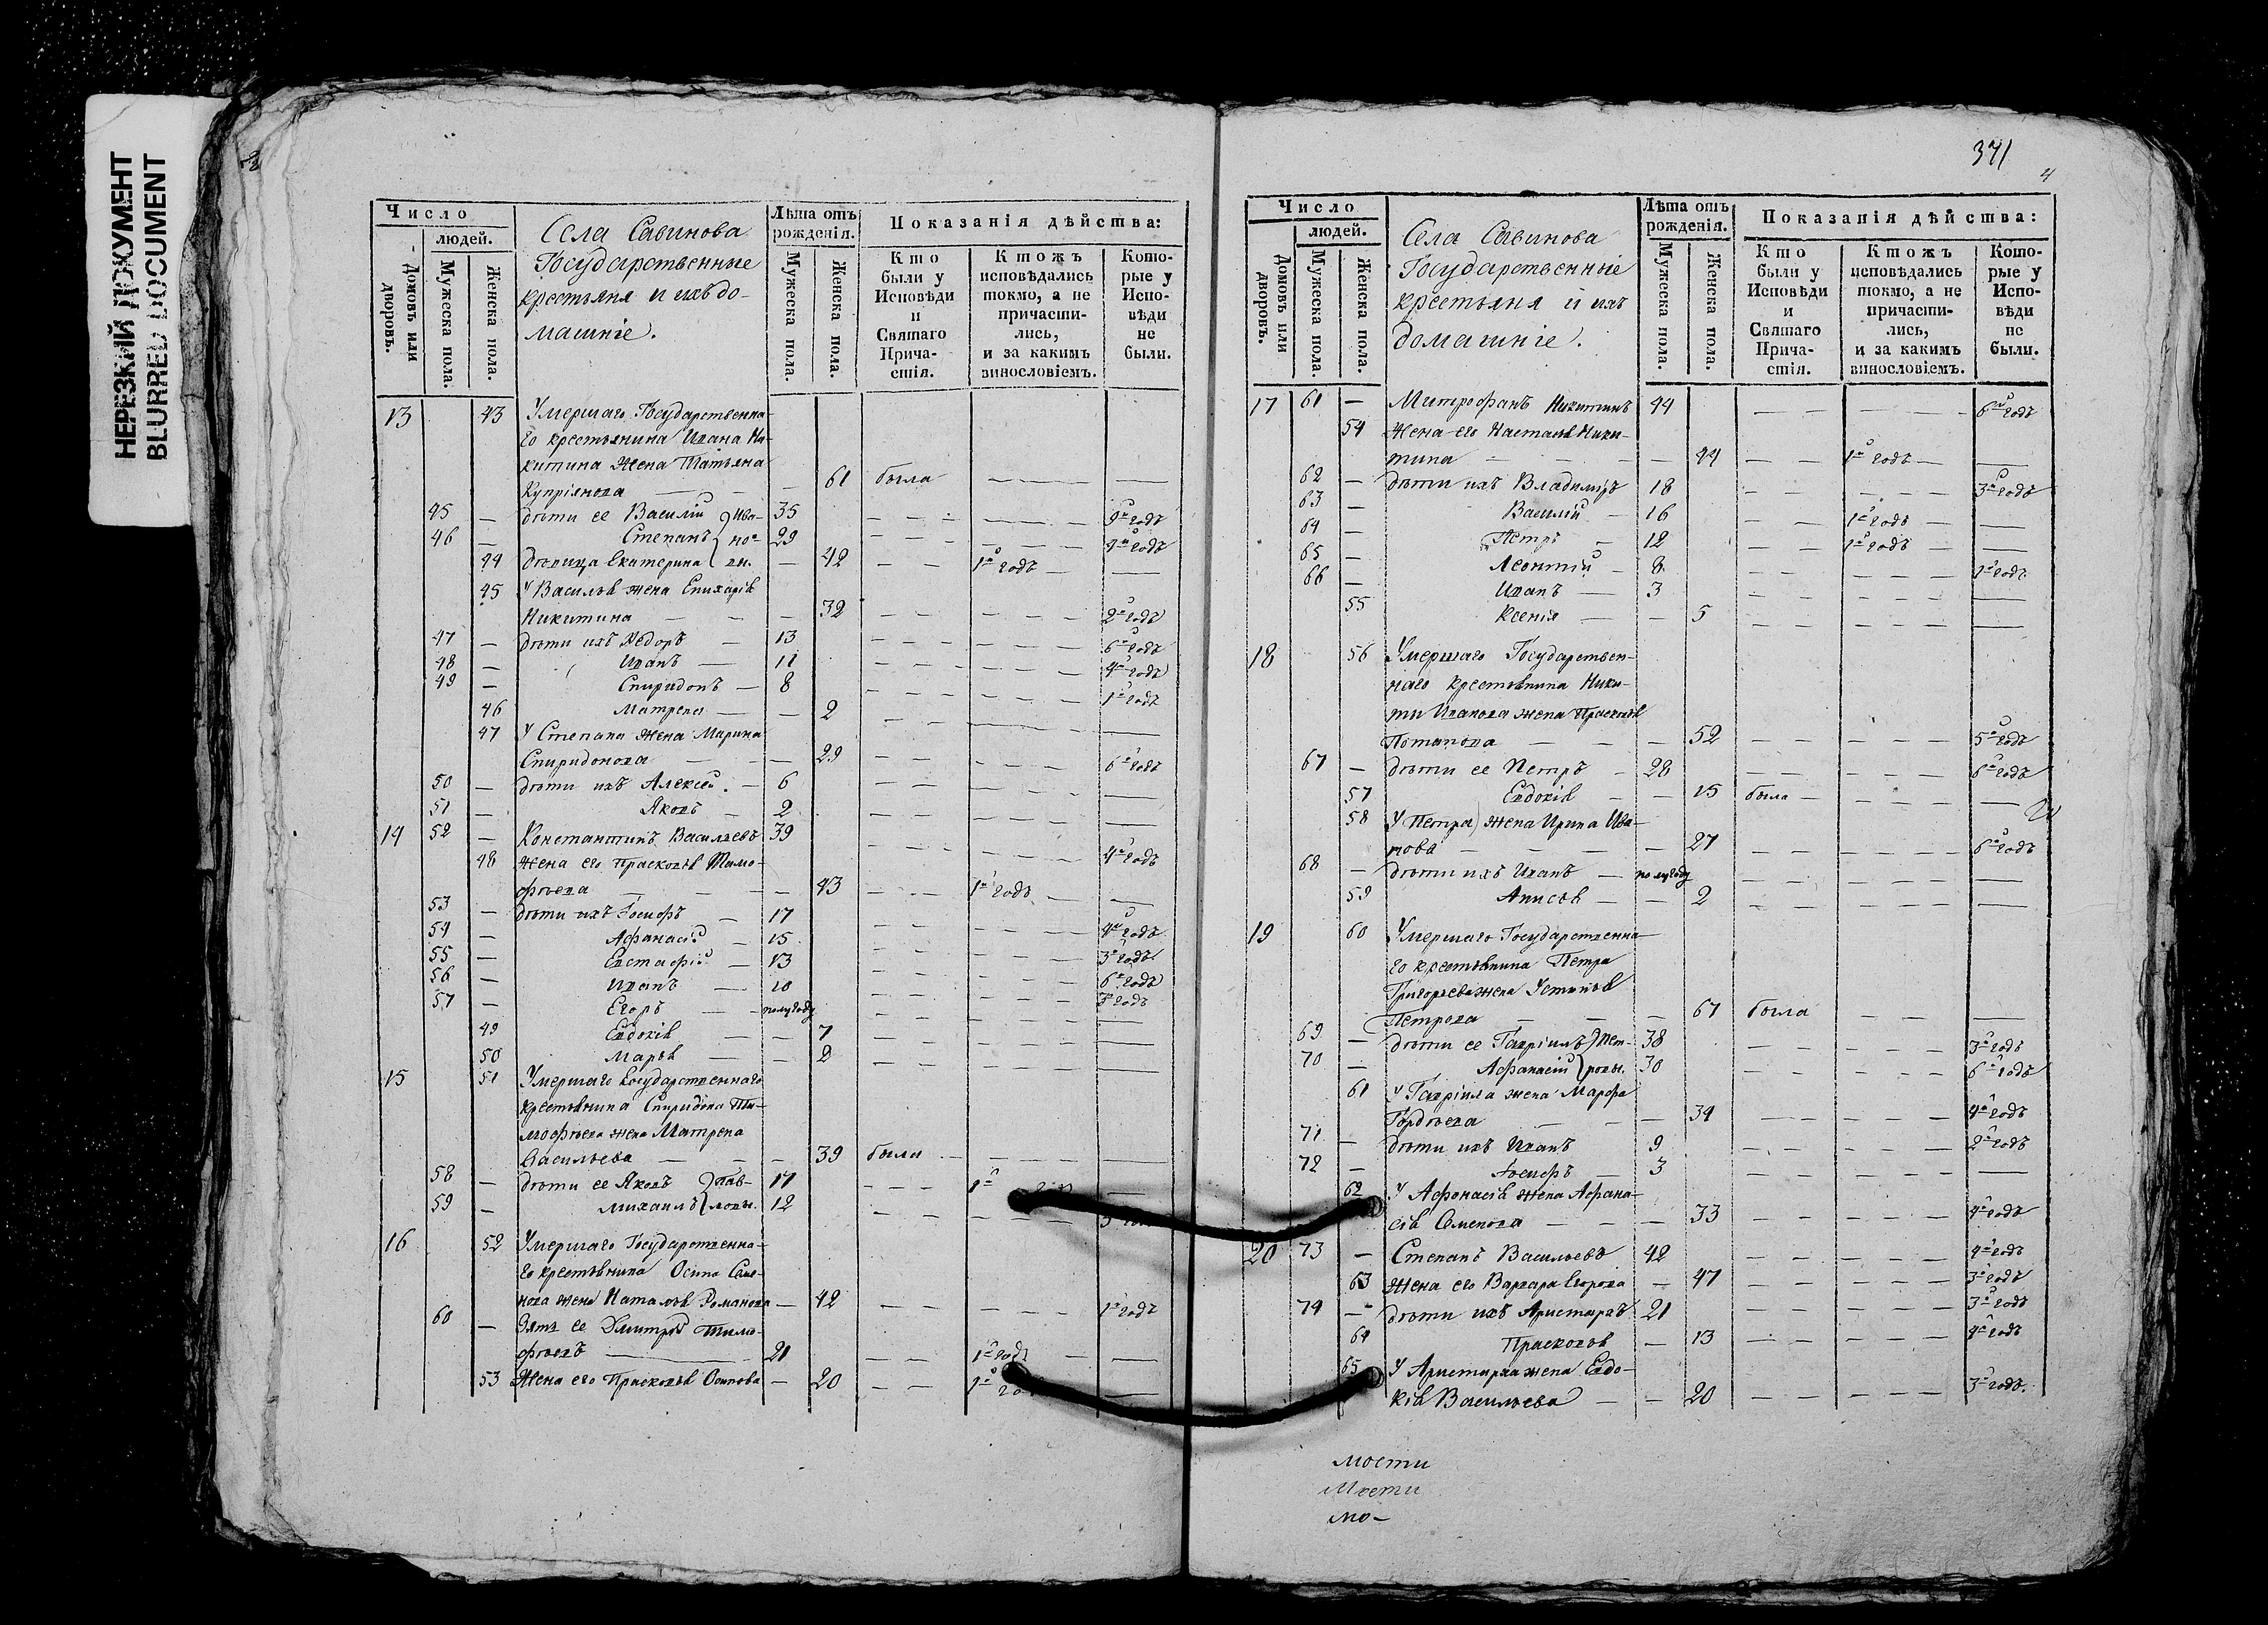 НЕРЕЗКИЙ ДОКУМЕНТ
BLURRED DOCUMENT
Число
людей.
Домовъ или дворовъ.
Мужеска пола.
Женска пола.
Села Савинова
Государственные
крестьяня и ихъ до-
машніе.
Лѣта отъ рожденія.
Мужеска пола.
Женска пола.
Показанія дѣйства:
Кто были у Исповѣди и Святаго Прича-стія.
Ктожъ исповѣдались токмо, а не причасти-лись, и за какимъ винословіемъ.
Кото-рые у Испо-вѣди не были.
13 43 Умершаго Государственна-
го крестьянина Ивана Ни-
китина жена Татьяна
Купріянова — — — 61 была — — — —
45 — дѣти ее Василій Ива- 35 — — — — — —
46 — Степанъ но- 29 — — — — — —
44 дѣвица Екатерина вы. — 42 — — 1й годъ — —
45 У Василья жена Епихарія
Никитина — — — 32 — — — — — 2й годъ
47 — дѣти ихъ Ѳедоръ — 13 — — — — — — 6й годъ
48 — Иванъ — 11 — — — — — — 4й годъ
49 — Спиридонъ — 8 — — — — — — 1й годъ
46 Матрена — — 2 — — — — — —
47 У Степана жена Марина
Спиридонова — — — 29 — — — — — 6й годъ
50 — дѣти ихъ Алексей. — 6 — — — — — —
51 — Яковъ — 2 — — — — — —
14 52 — Константинъ Васильевъ 39 — — — — — — 4й годъ
48 жена его Прасковья Тимо-
фѣева — — — — 43 — — 1й годъ — —
53 — дѣти ихъ Іосифъ — 17 — — — — — — 4й годъ
54 — Афанасій — 15 — — — — — — 3й годъ
55 — Евстафій — 13 — — — — — — 6й годъ
56 — Иванъ — 10 — — — — — — годъ
57 — Егоръ — полугоду — — — — — —
49 Евдокія — — 7 — — — — — —
50 Марья — — 2 — — — — — —
15 51 Умершаго Государственнаго
крестьянина Спиридона Ти-
мофѣева жена Матрена
Васильева — — — 39 была — — — — —
58 — дѣти ее Яковъ Пав- 17 — — — 1й —
59 — Михаилъ ловы. 12 — — — — — —
16 52 Умершаго Государственна-
го крестьянина Осипа Семе-
нова жена Наталья Романова — 42 — — — — — 1й годъ
60 — Зять ее Дмитрій Тимо-
фѣевъ — 21 — — 1й годъ — —
53 Жена его Прасковья Осипова — 20 — — 1й —
371
4
Число
людей.
Домовъ или дворовъ.
Мужеска пола.
Женска пола.
Села Савинова
Государственніе
крестьяня и ихъ
домашніе.
Лѣта отъ рожденія.
Мужеска пола.
Женска пола.
Показанія дѣйства:
Кто были у Исповѣди и Святаго Прича-стія.
Ктожъ исповѣдались токмо, а не причасти-лись, и за какимъ винословіемъ.
Кото-рые у Испо-вѣди не были.
17 61 — Митрофанъ Никитинъ 44 — — — — — 6й годъ
54 жена его Настасья Ники-
тина — — — 44 — — 1й годъ — —
62 — дѣти ихъ Владимиръ 18 — — — — — 3й годъ
63 — Василій — 16 — — 1й годъ — —
64 — Петръ — 12 — — 1й годъ — —
65 — Леонтій — 8. — — — — — 1й годъ
66 — Иванъ — 3 — — — — — —
55 Ксенія — — 5 — — — — — —
18 56 Умершаго Государствен-
наго крестьянина Ники-
ты Иванова жена Прасковья
Потапова — — — 52 — — — — — 5й годъ
67 — дѣти ее Петръ — 28 — — — — — 6й годъ
57 Евдокія — — 15 была — — — — —
58 У Петра жена Ирина Ива-
нова — — — — 27 — — — — — 6й годъ
68 — дѣти ихъ Иванъ — полугоду — — — — — —
59 Анисья — — 2 — — — — — —
19 60 Умершаго Государственна-
го крестьянина Петра
Григорьева жена Устинья
Петрова — — — 67 была — — —
69 — дѣти ее Гавріилъ Пет- 38 — — — — — 3й годъ
70 — Афанасій ровы. 30 — — — — — 6й годъ
61 У Гавріила жена Марфа
Гордѣева — — — 34 — — — — — 4й годъ
71 — дѣти ихъ Иванъ 9 — — — — — 2й годъ
72 — Іосифъ — 3 — — — — — —
62 У Афонасія жена Афана-
сія Семенова — — — 33 — — — — — 4й годъ
20 73 — Степанъ Васильевъ 42 — — — — — 4й годъ
63 жена его Варвара Егорова — 47 — — — — — 3й годъ
74 — дѣти ихъ Аристархъ 21 — — — — — 3й годъ
64 Прасковья — 13 — — — — — 4й годъ
65 У Аристарха жена Евдо-
кія Васильева — — 20 — — — — — 3й годъ.
мости
Мости
мо-